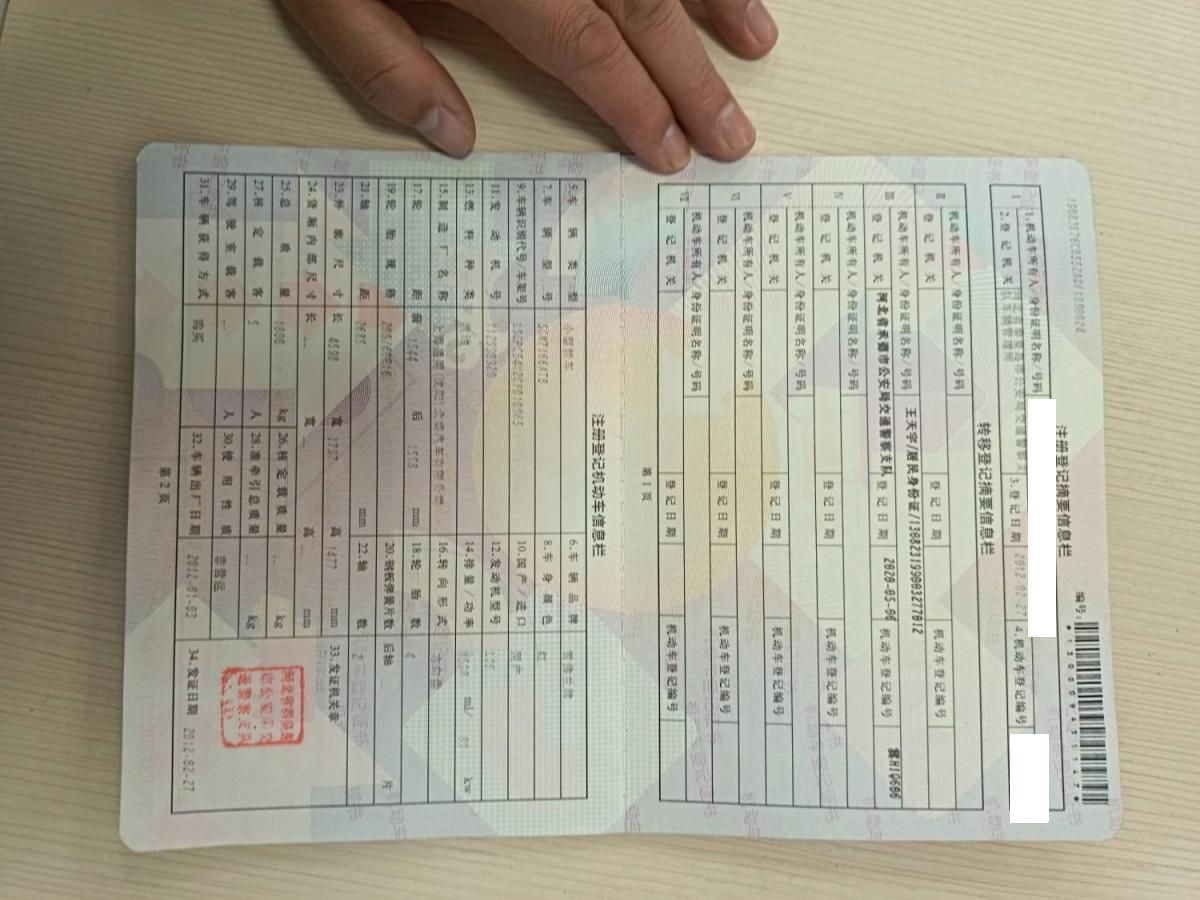 注册登记摘要信息栏
编号:
*130009451147*
Ⅰ
1.机动车所有人/身份证明名称/号码
2.登记机关
3.登记日期 2012-02-27
4.机动车登记编号
转移登记摘要信息栏
Ⅱ 机动车所有人/身份证明名称/号码
登记机关 登记日期 机动车登记编号
Ⅲ 机动车所有人/身份证明名称/号码 王天宇/居民身份证/130823199003277012
登记机关 河北省承德市公安局交通警察支队 登记日期 2020-05-06 机动车登记编号 冀H1Q606
Ⅳ 机动车所有人/身份证明名称/号码
登记机关 登记日期 机动车登记编号
Ⅴ 机动车所有人/身份证明名称/号码
登记机关 登记日期 机动车登记编号
Ⅵ 机动车所有人/身份证明名称/号码
登记机关 登记日期 机动车登记编号
Ⅶ 机动车所有人/身份证明名称/号码
登记机关 登记日期 机动车登记编号
第1页
注册登记机动车信息栏
5.车辆类型 小型轿车 6.车辆品牌
7.车辆型号 8.车身颜色 红
9.车辆识别代号/车架号 10.国产/进口 国产
11.发动机号 12.发动机型号
13.燃料种类 汽油 14.排量/功率 ml/ kw
15.制造厂名称 16.转向形式
17.轮距 前 1544 后 1558 mm 18.轮胎数 4
19.轮胎规格 20.钢板弹簧片数 后轴 片
21.轴距 2685 mm 22.轴数 2
23.外廓尺寸 长 4598 宽 1797 高 1477 mm 33.发证机关章
24.货厢内部尺寸 长 宽 高 mm
25.总质量 kg 26.核定载质量 kg
27.核定载客 5 人 28.准牵引总质量 kg
29.驾驶室载客 人 30.使用性质 非营运
31.车辆获得方式 购买 32.车辆出厂日期 2012-01-03 34.发证日期 2012-02-27
第2页